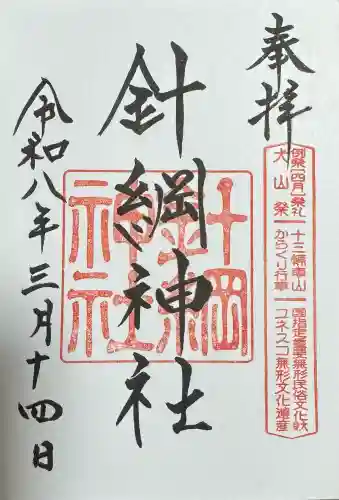 奉拝
例祭[四月]祭礼
犬山祭
十三輌車山
からくり行事
国指定重要無形民俗文化財
ユネスコ無形文化遺産
針綱神社
針綱
神社
令和八年三月十四日